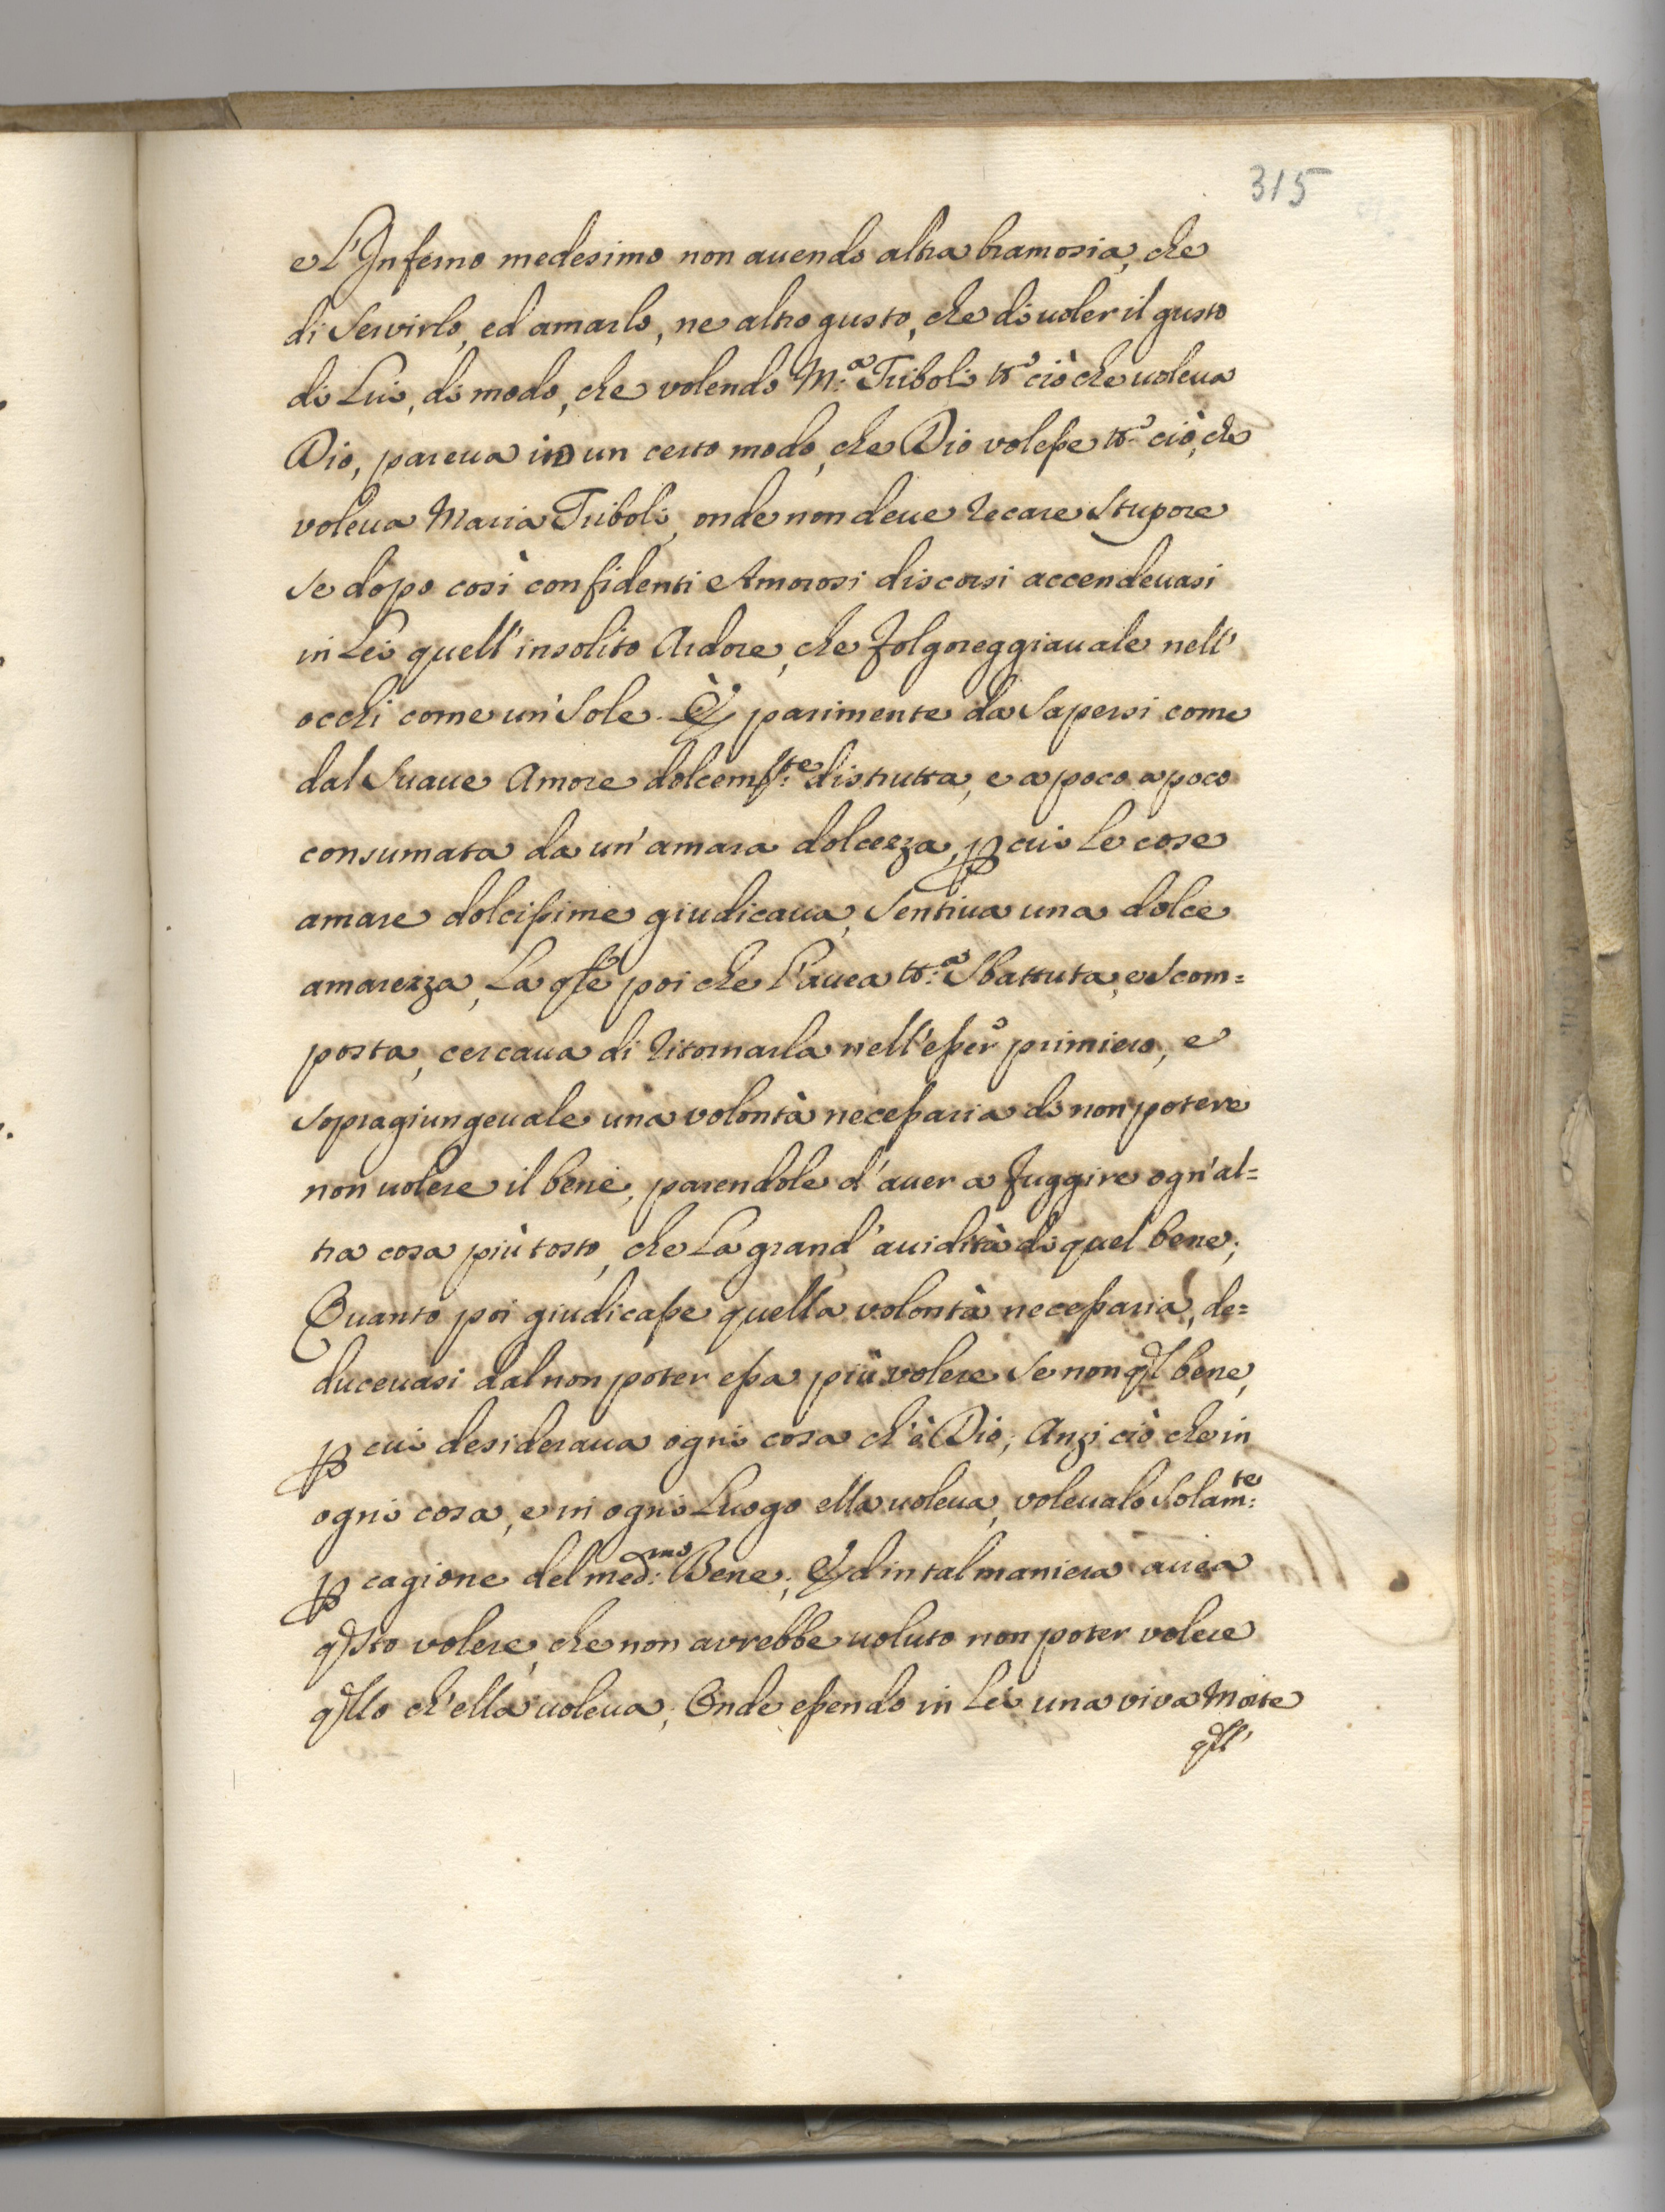 315
e L'Inferno medesimo non auendo altra bramosia, che
di Servirlo, ed amarlo, ne altro gusto, che di uoler il gusto
di Lui, di modo, che volendo M:a Triboli tt.o ciò che uoleua
Dio, pareua in un certo modo, che Dio volesse tt.o ciò, che
voleua Maria Triboli, onde non deue recare Stupore
se dopo così confidenti Amorosi discorsi accendeuasi
in Lei quell'insolito Ardore, che folgoreggiauale nell'
occhi come un Sole. È parimente da Sapersi come
dal Suaue Amore dolcem:te distrutta, e a poco a poco
consumata da un'amara dolcezza, p cui Le cose
amare dolcissime giudicaua, Sentiua una dolce
amarezza, La qle poi che L'auea tt:a Sbattuta, e Scom=
posta, cercaua di ritornarla nell'esser primiero, e
Sopragiungeuale una volontà necessaria di non potere
non uolere il bene, parendole d'auer a fuggire ogn'al=
tra cosa più tosto, che La grand'auidità di quel bene;
Quanto poi giudicasse quella volontà necessaria, de=
duceuasi dal non poter essa più volere Se non ql bene,
p cui desideraua ogni cosa ch'è Dio; Anzi ciò che in
ogni cosa, e in ogni Luogo ella uoleua, voleualo Solam:te
p cagione del med:mo Bene; Ed in tal maniera auea
qsto volere, che non avrebbe uoluto non poter volere
qllo ch'ella uoleua; Onde essendo in Lei una viva Morte
qll'